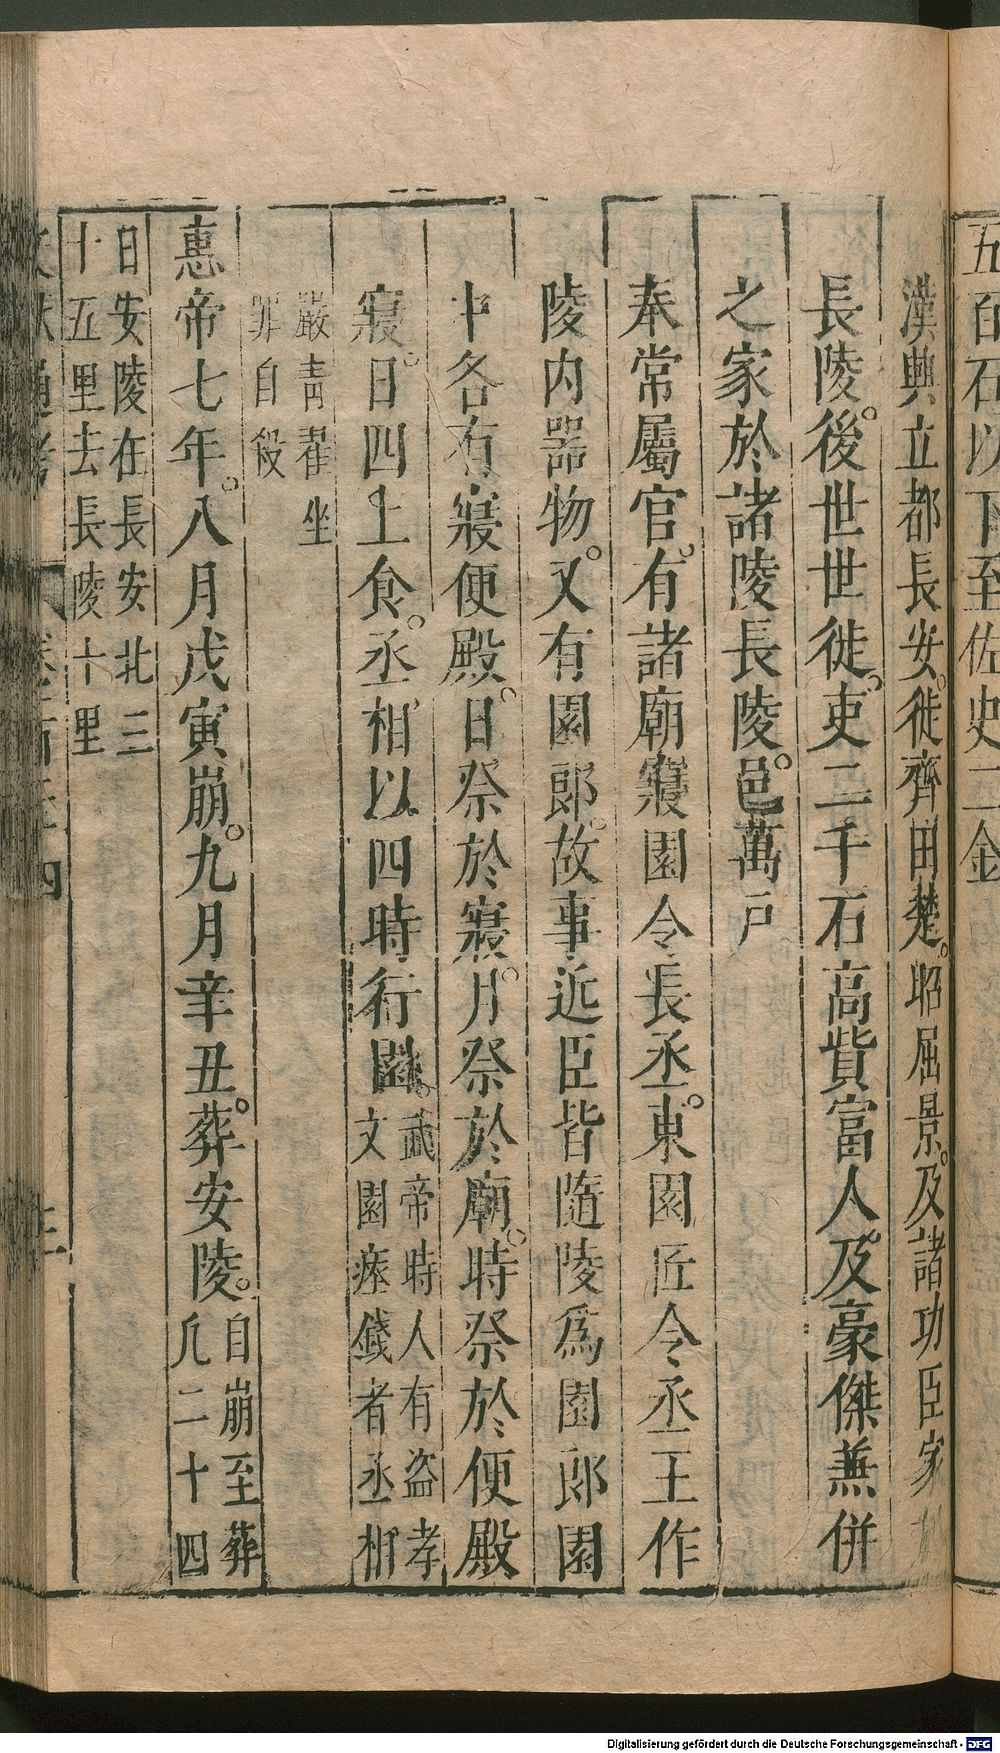 五百石以下至佐史二金
漢興立都長安徙齊田楚昭屈景及諸功臣家
長陵後世世徙吏二千石高貲富人及豪傑兼併
之家於諸陵長陵邑萬戸
奉常屬官有諸廟寢園令長丞東園匠令丞主作
陵内器物又有園郎故事近臣皆隨陵爲園郎園
中各有寢便殿日祭於寢月祭於廟時祭於便殿
寢日四上食丞相以四時行園武帝時人有盗孝
文園瘞錢者丞相
嚴青翟坐
罪自殺
惠帝七年八月戊寅崩九月辛丑葬安陵自崩至葬
凡二十四
日安陵在長安北三
十五里去長陵十里
文獻通考 卷一百二十四 三
Digitalisierung gefördert durch die Deutsche Forschungsgemeinschaft - DFG